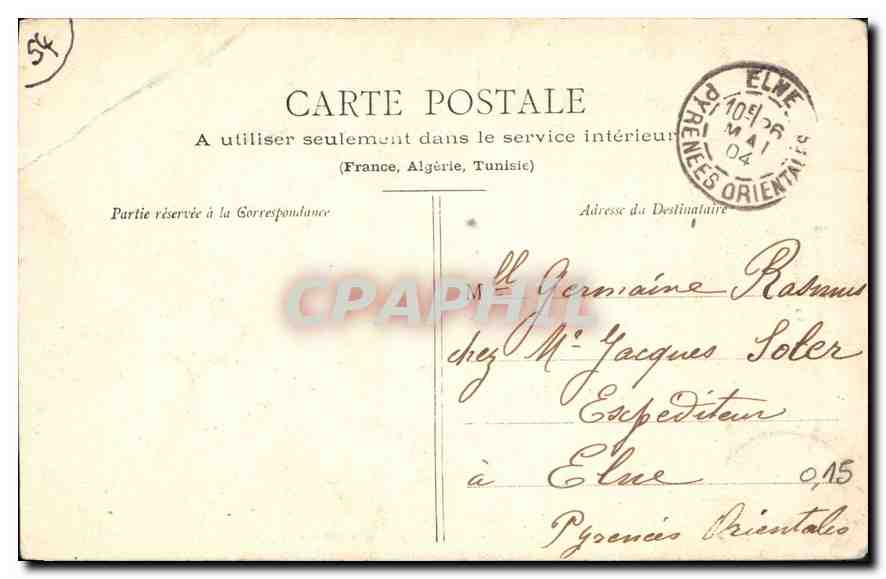 54
CARTE POSTALE
A utiliser seulement dans le service intérieur
(France, Algérie, Tunisie)
ELNE
10E/26
MAI
04
PYRENEES ORIENTALES
Partie réservée à la Correspondance
Adresse du Destinataire
CPAPHIL
Mlle Germaine Rasmus
chez Mr Jacques Soler
Expéditeur
à Elne
0,15
Pyrenées Orientales